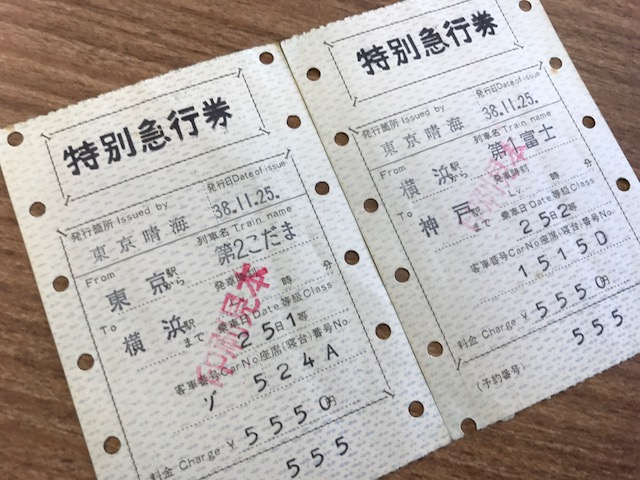 特別急行券
発行箇所 Issued by
発行日 Date of issue
東京晴海
38.11.25.
From
列車名 Train name
東京駅から
第2こだま
To
発車
時 分
横浜駅まで
乗車日 Date 等級 Class
25日1等
客車番号 Car No. 座席(寝台)番号 No.
ソ 524A
料金 Charge ¥ 5550円
555
見本
特別急行券
発行箇所 Issued by
発行日 Date of issue
東京晴海
38.11.25.
From
列車名 Train name
横浜駅から
富士
To
発車時刻
Lv. 時 分
神戸駅まで
乗車日 Date 等級 Class
25日2等
客車番号 Car No. 座席(寝台)番号 No.
1515D
料金 Charge ¥ 5550円
555
(予約番号)